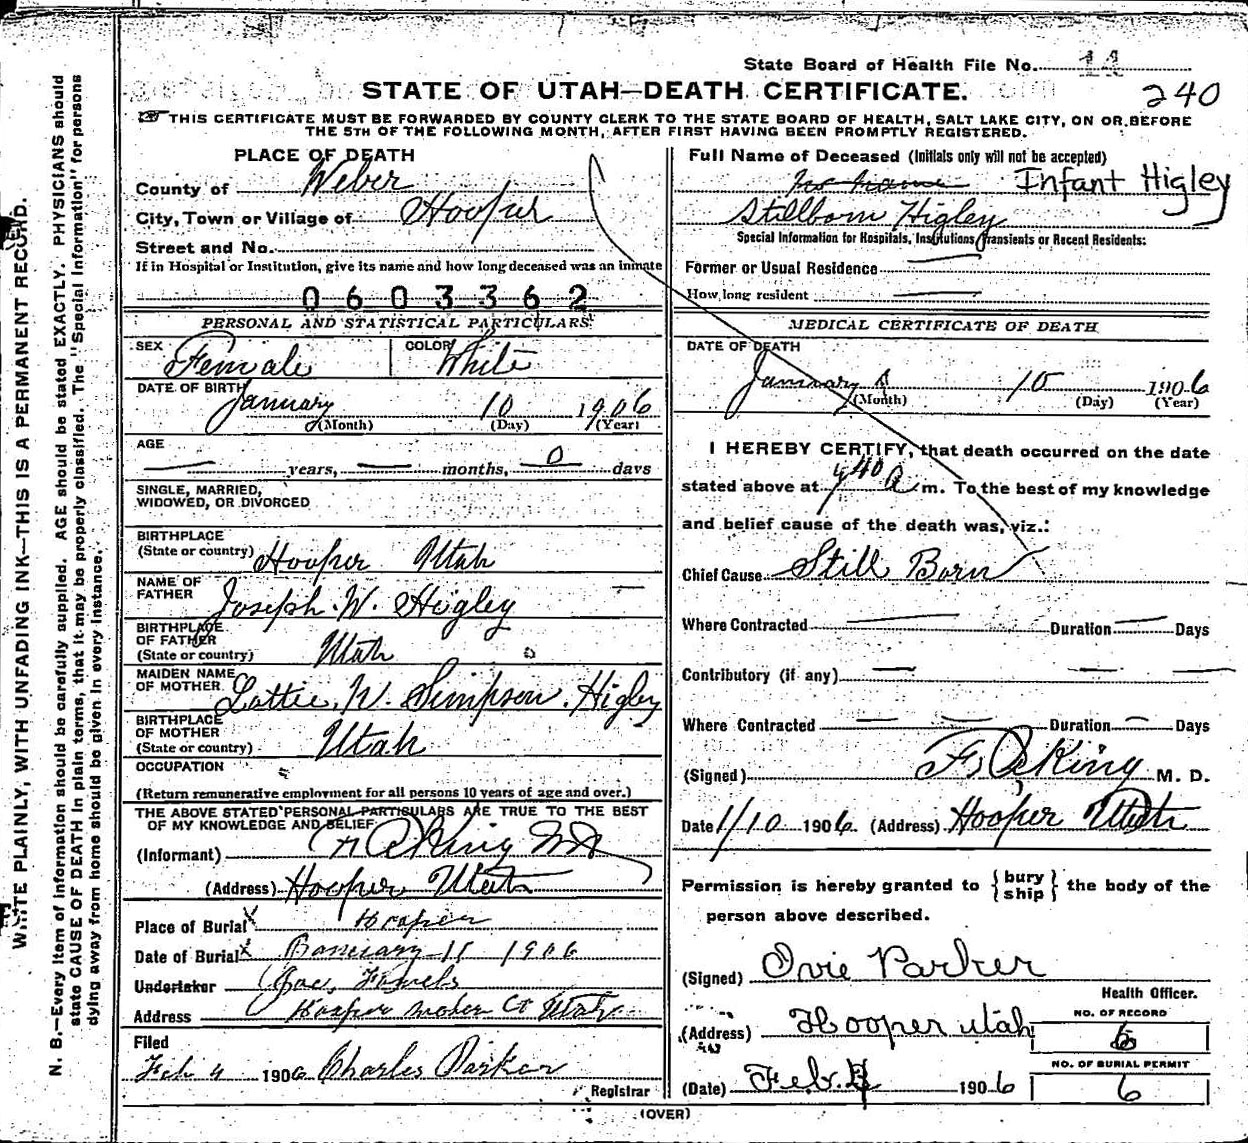 State Board of Health File No. 11
STATE OF UTAH—DEATH CERTIFICATE.
240
THIS CERTIFICATE MUST BE FORWARDED BY COUNTY CLERK TO THE STATE BOARD OF HEALTH, SALT LAKE CITY, ON OR BEFORE
THE 5TH OF THE FOLLOWING MONTH, AFTER FIRST HAVING BEEN PROMPTLY REGISTERED.
PLACE OF DEATH
County of Weber
City, Town or Village of Hooper
Street and No.
If in Hospital or Institution, give its name and how long deceased was an inmate
0603362
PERSONAL AND STATISTICAL PARTICULARS
SEX Female COLOR White
DATE OF BIRTH January 10 1906
(Month) (Day) (Year)
AGE
years, months, 0 days
SINGLE, MARRIED,
WIDOWED, OR DIVORCED
BIRTHPLACE
(State or country) Hooper Utah
NAME OF
FATHER Joseph W. Higley
BIRTHPLACE
OF FATHER
(State or country) Utah
MAIDEN NAME
OF MOTHER Lottie W. Simpson Higley
BIRTHPLACE
OF MOTHER
(State or country) Utah
OCCUPATION
(Return remunerative employment for all persons 10 years of age and over.)
THE ABOVE STATED PERSONAL PARTICULARS ARE TRUE TO THE BEST
OF MY KNOWLEDGE AND BELIEF
(Informant) King MD
(Address) Hooper Utah
Place of Burial x Hooper
Date of Burial x January 11 1906
Undertaker
Address Hooper Utah
Filed
Feb 4 1906 Charles Parker
Registrar
Full Name of Deceased (Initials only will not be accepted)
No name Infant Higley
Stillborn Higley
Special Information for Hospitals, Institutions, Transients or Recent Residents:
Former or Usual Residence
How long resident
MEDICAL CERTIFICATE OF DEATH
DATE OF DEATH
January 10 1906
(Month) (Day) (Year)
I HEREBY CERTIFY, that death occurred on the date
stated above at 40 a m. To the best of my knowledge
and belief cause of the death was, viz.:
Chief Cause Still Born
Where Contracted Duration Days
Contributory (if any)
Where Contracted Duration Days
(Signed) King M. D.
Date 1/10 1906. (Address) Hooper Utah
Permission is hereby granted to {bury ship} the body of the
person above described.
(Signed) Ovie Parker
Health Officer.
(Address) Hooper Utah
NO. OF RECORD
6
NO. OF BURIAL PERMIT
6
(Date) Feb. 1906
(OVER)
WRITE PLAINLY, WITH UNFADING INK—THIS IS A PERMANENT RECORD.
N. B.—Every item of information should be carefully supplied. AGE should be stated EXACTLY. PHYSICIANS should
state CAUSE OF DEATH in plain terms, that it may be properly classified. The "Special Information" for persons
dying away from home should be given in every instance.